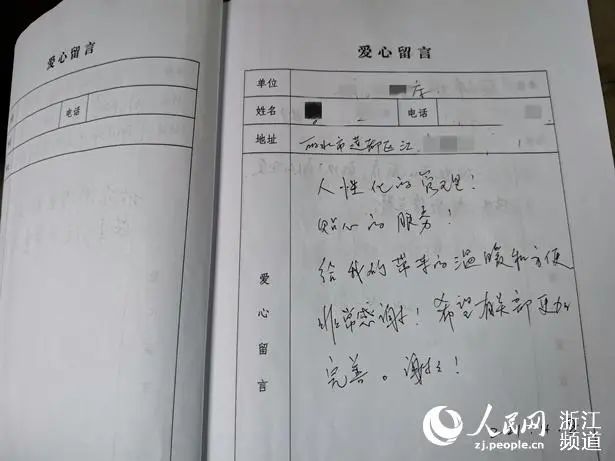 爱心留言
电话
爱心留言
单位
姓名 电话
地址 丽水市莲都区江
爱心留言
人性化的管理！
贴心的服务！
给我们带来的温暖和方便
非常感谢！希望有关部更加
完善。谢谢！
人民网 浙江频道
zj.people.cn